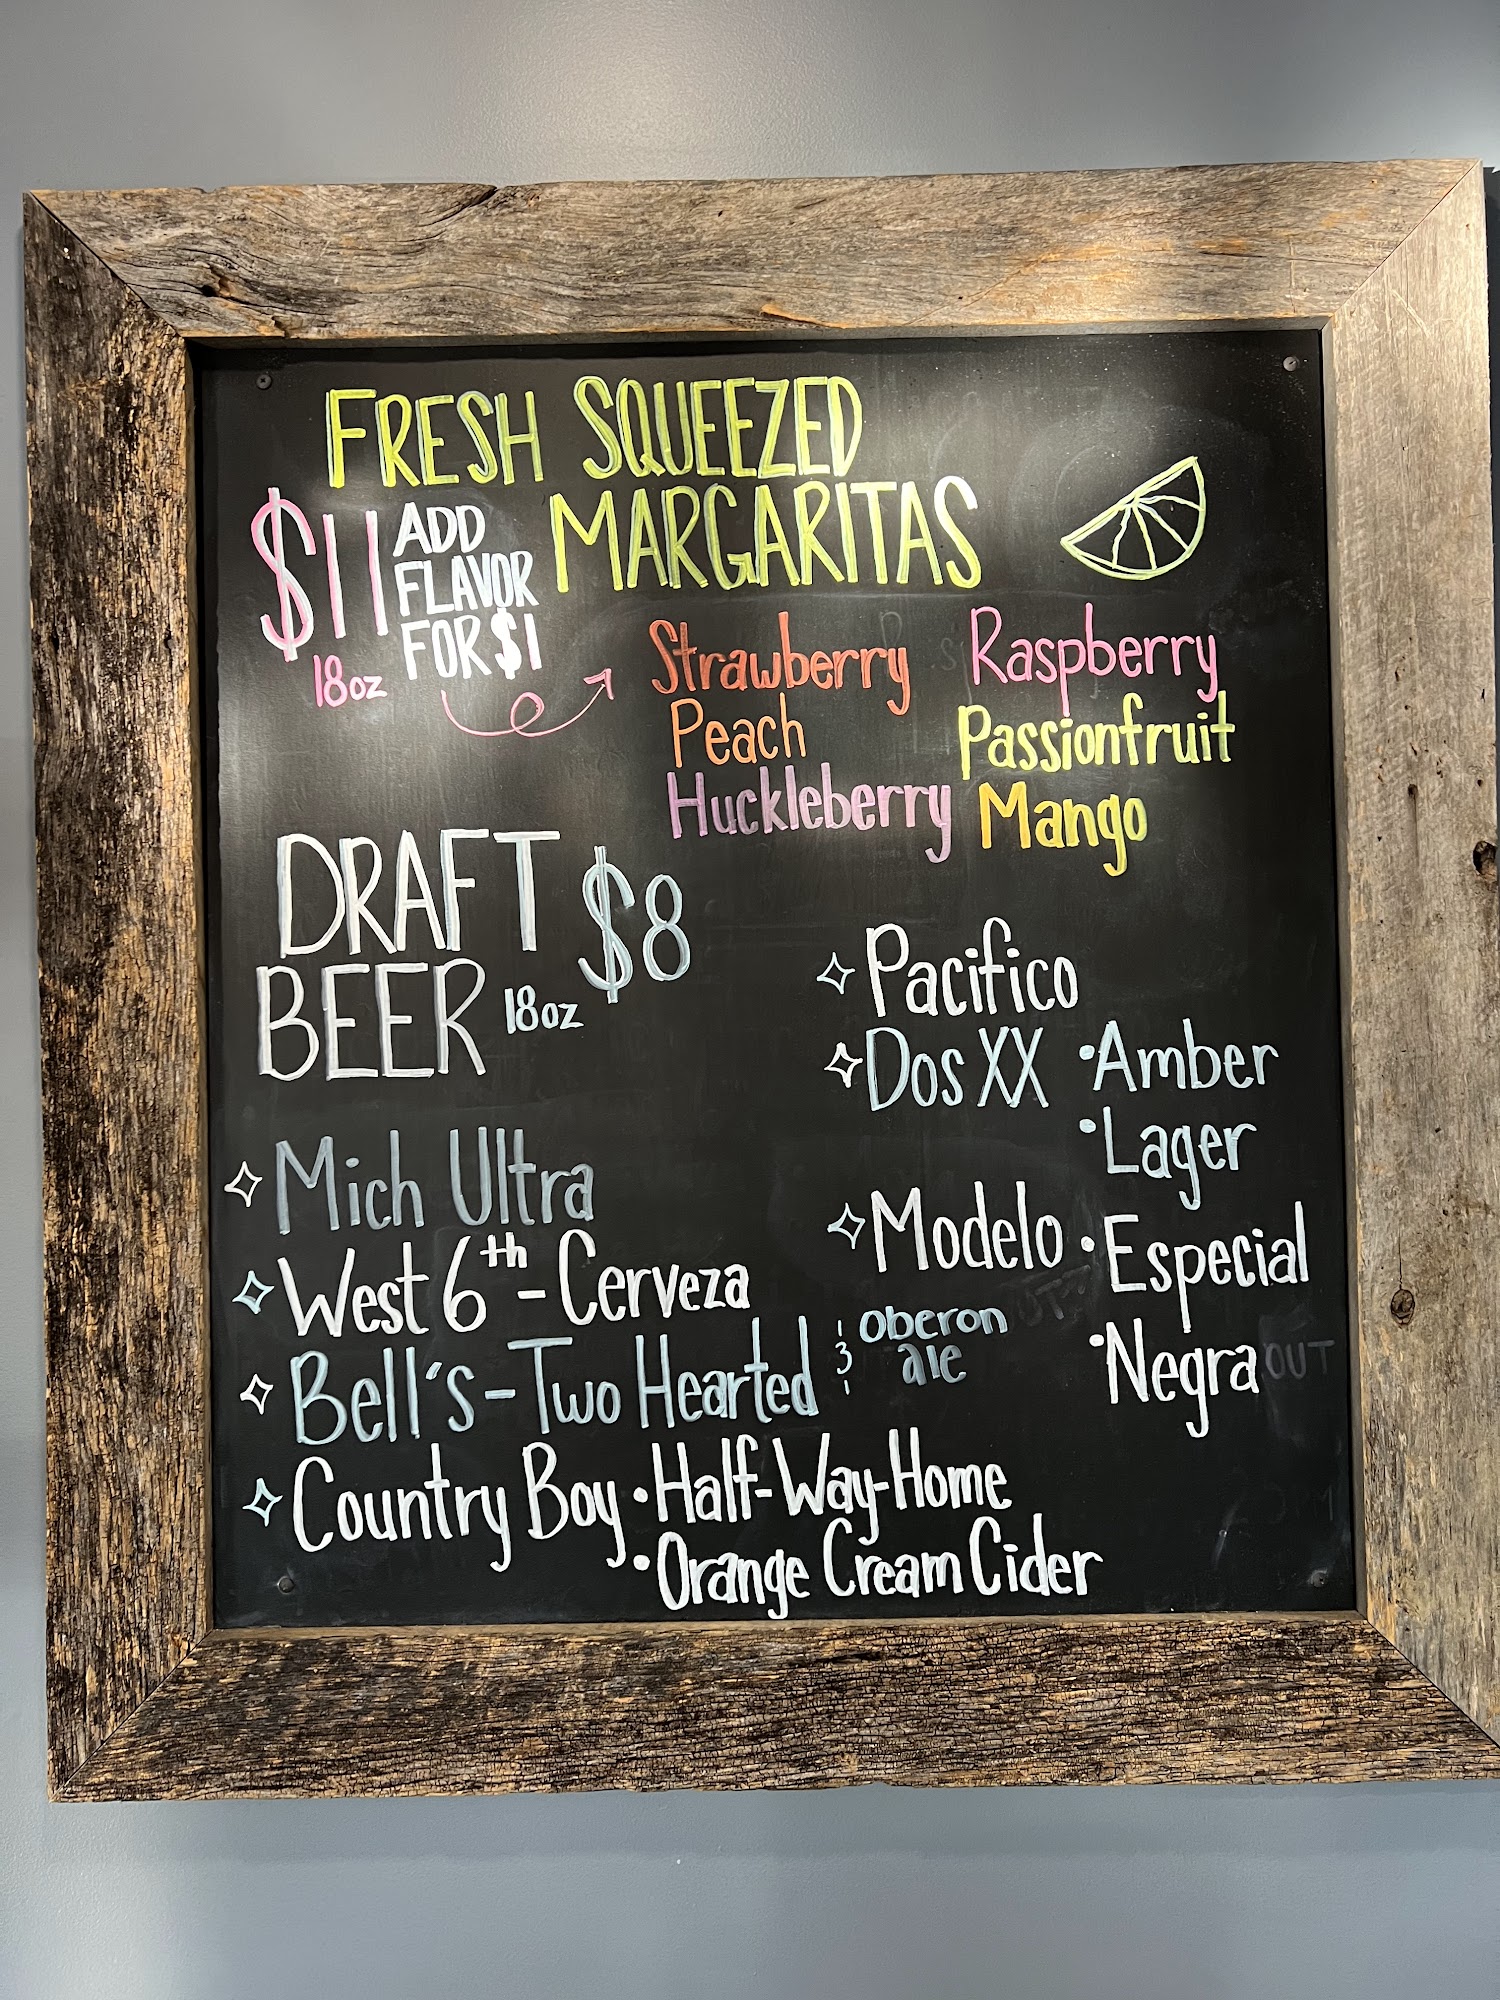 FRESH SQUEEZED
MARGARITAS
$11
18oz
ADD
FLAVOR
FOR $1
Strawberry
Peach
Huckleberry
Raspberry
Passionfruit
Mango
DRAFT
BEER
18oz
$8
Mich Ultra
West 6th - Cerveza
Bell's - Two Hearted & Oberon
ale
Country Boy • Half-Way-Home
• Orange Cream Cider
Pacifico
Dos XX • Amber
• Lager
Modelo • Especial
• Negra OUT